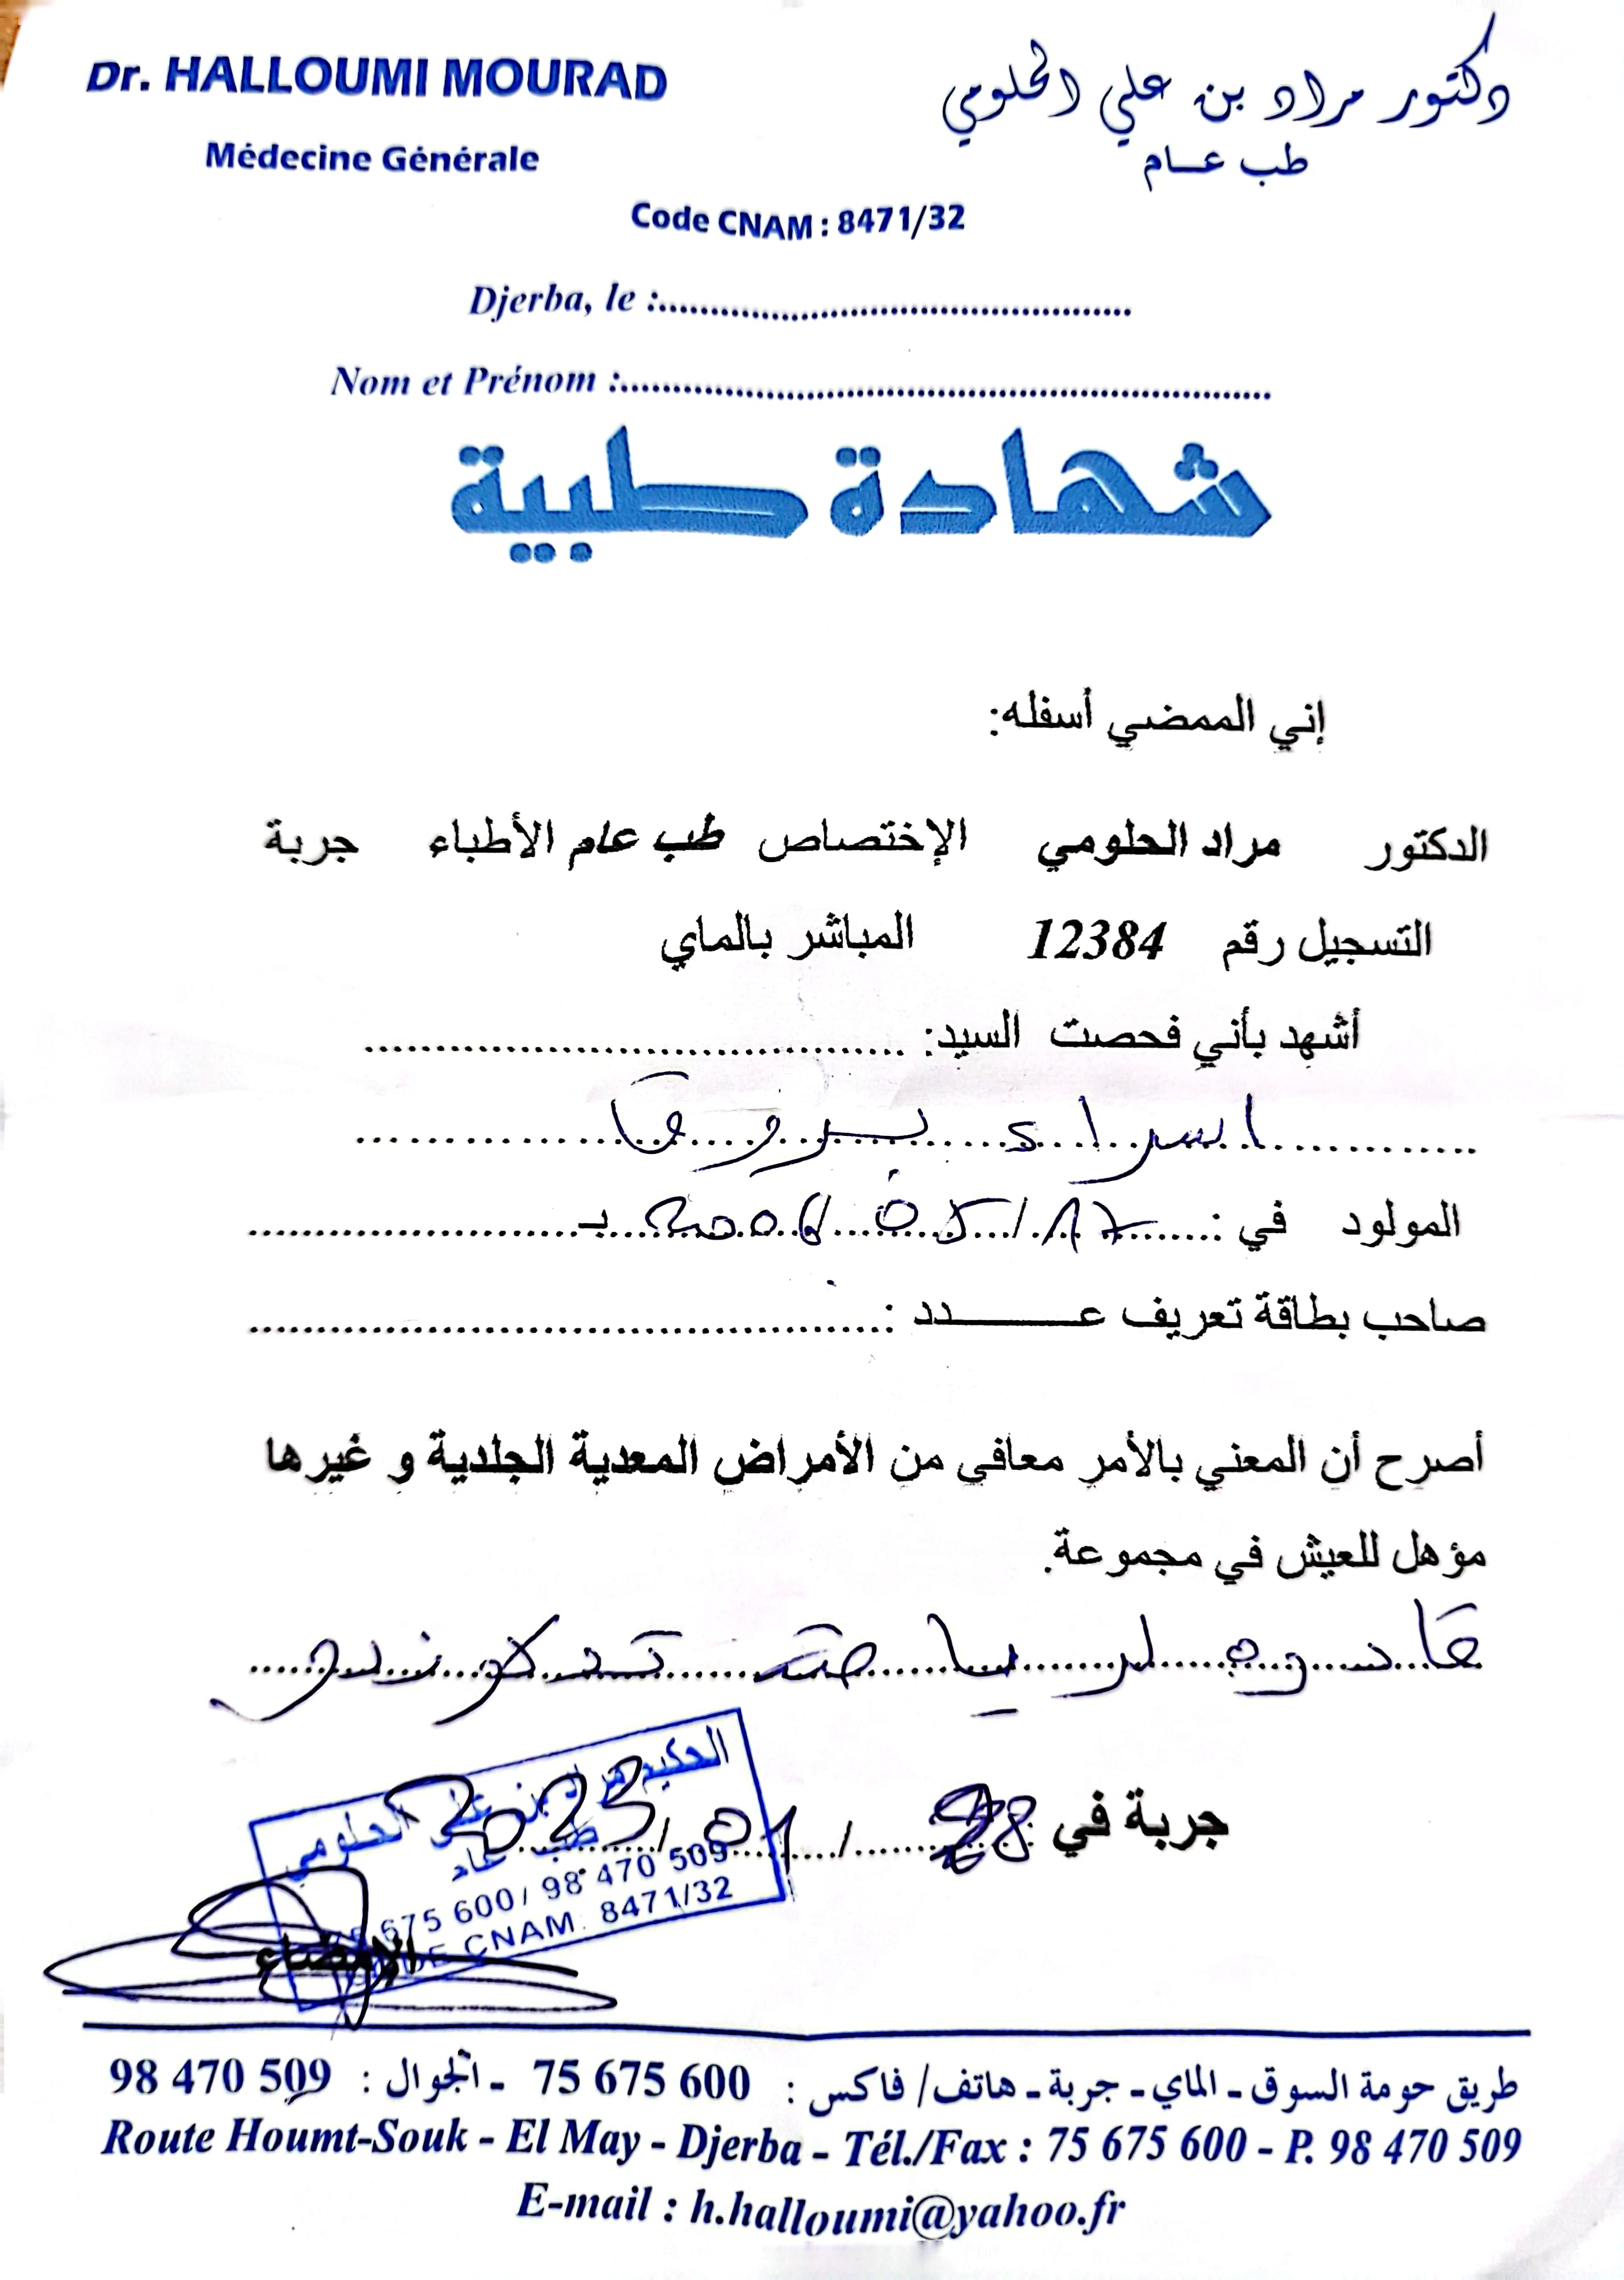 Dr. HALLOUMI MOURAD
دكتور مراد بن علي الحلومي
Médecine Générale
طب عـام
Code CNAM : 8471/32
Djerba, le :
Nom et Prénom :
شهادة طبية
إني الممضي أسفله:
الدكتور مراد الحلومي الإختصاص طب عام الأطباء جربة
التسجيل رقم 12384 المباشر بالماي
أشهد بأني فحصت السيد:
اسراء
المولود في : 17/05/2006 بـ
صاحب بطاقة تعريف عـــــدد :
أصرح أن المعني بالأمر معافى من الأمراض المعدية الجلدية و غيرها
مؤهل للعيش في مجموعة.
لرياضة تيكوندو
جربة في 28/01/2023
الحكيم مراد بن علي الحلومي
طب عام
75 675 600 / 98 470 509
CODE CNAM. 8471/32
الإمضاء
طريق حومة السوق ـ الماي ـ جربة ـ هاتف/ فاكس : 75 675 600 ـ الجوال : 98 470 509
Route Houmt-Souk - El May - Djerba - Tél./Fax : 75 675 600 - P. 98 470 509
E-mail : h.halloumi@yahoo.fr